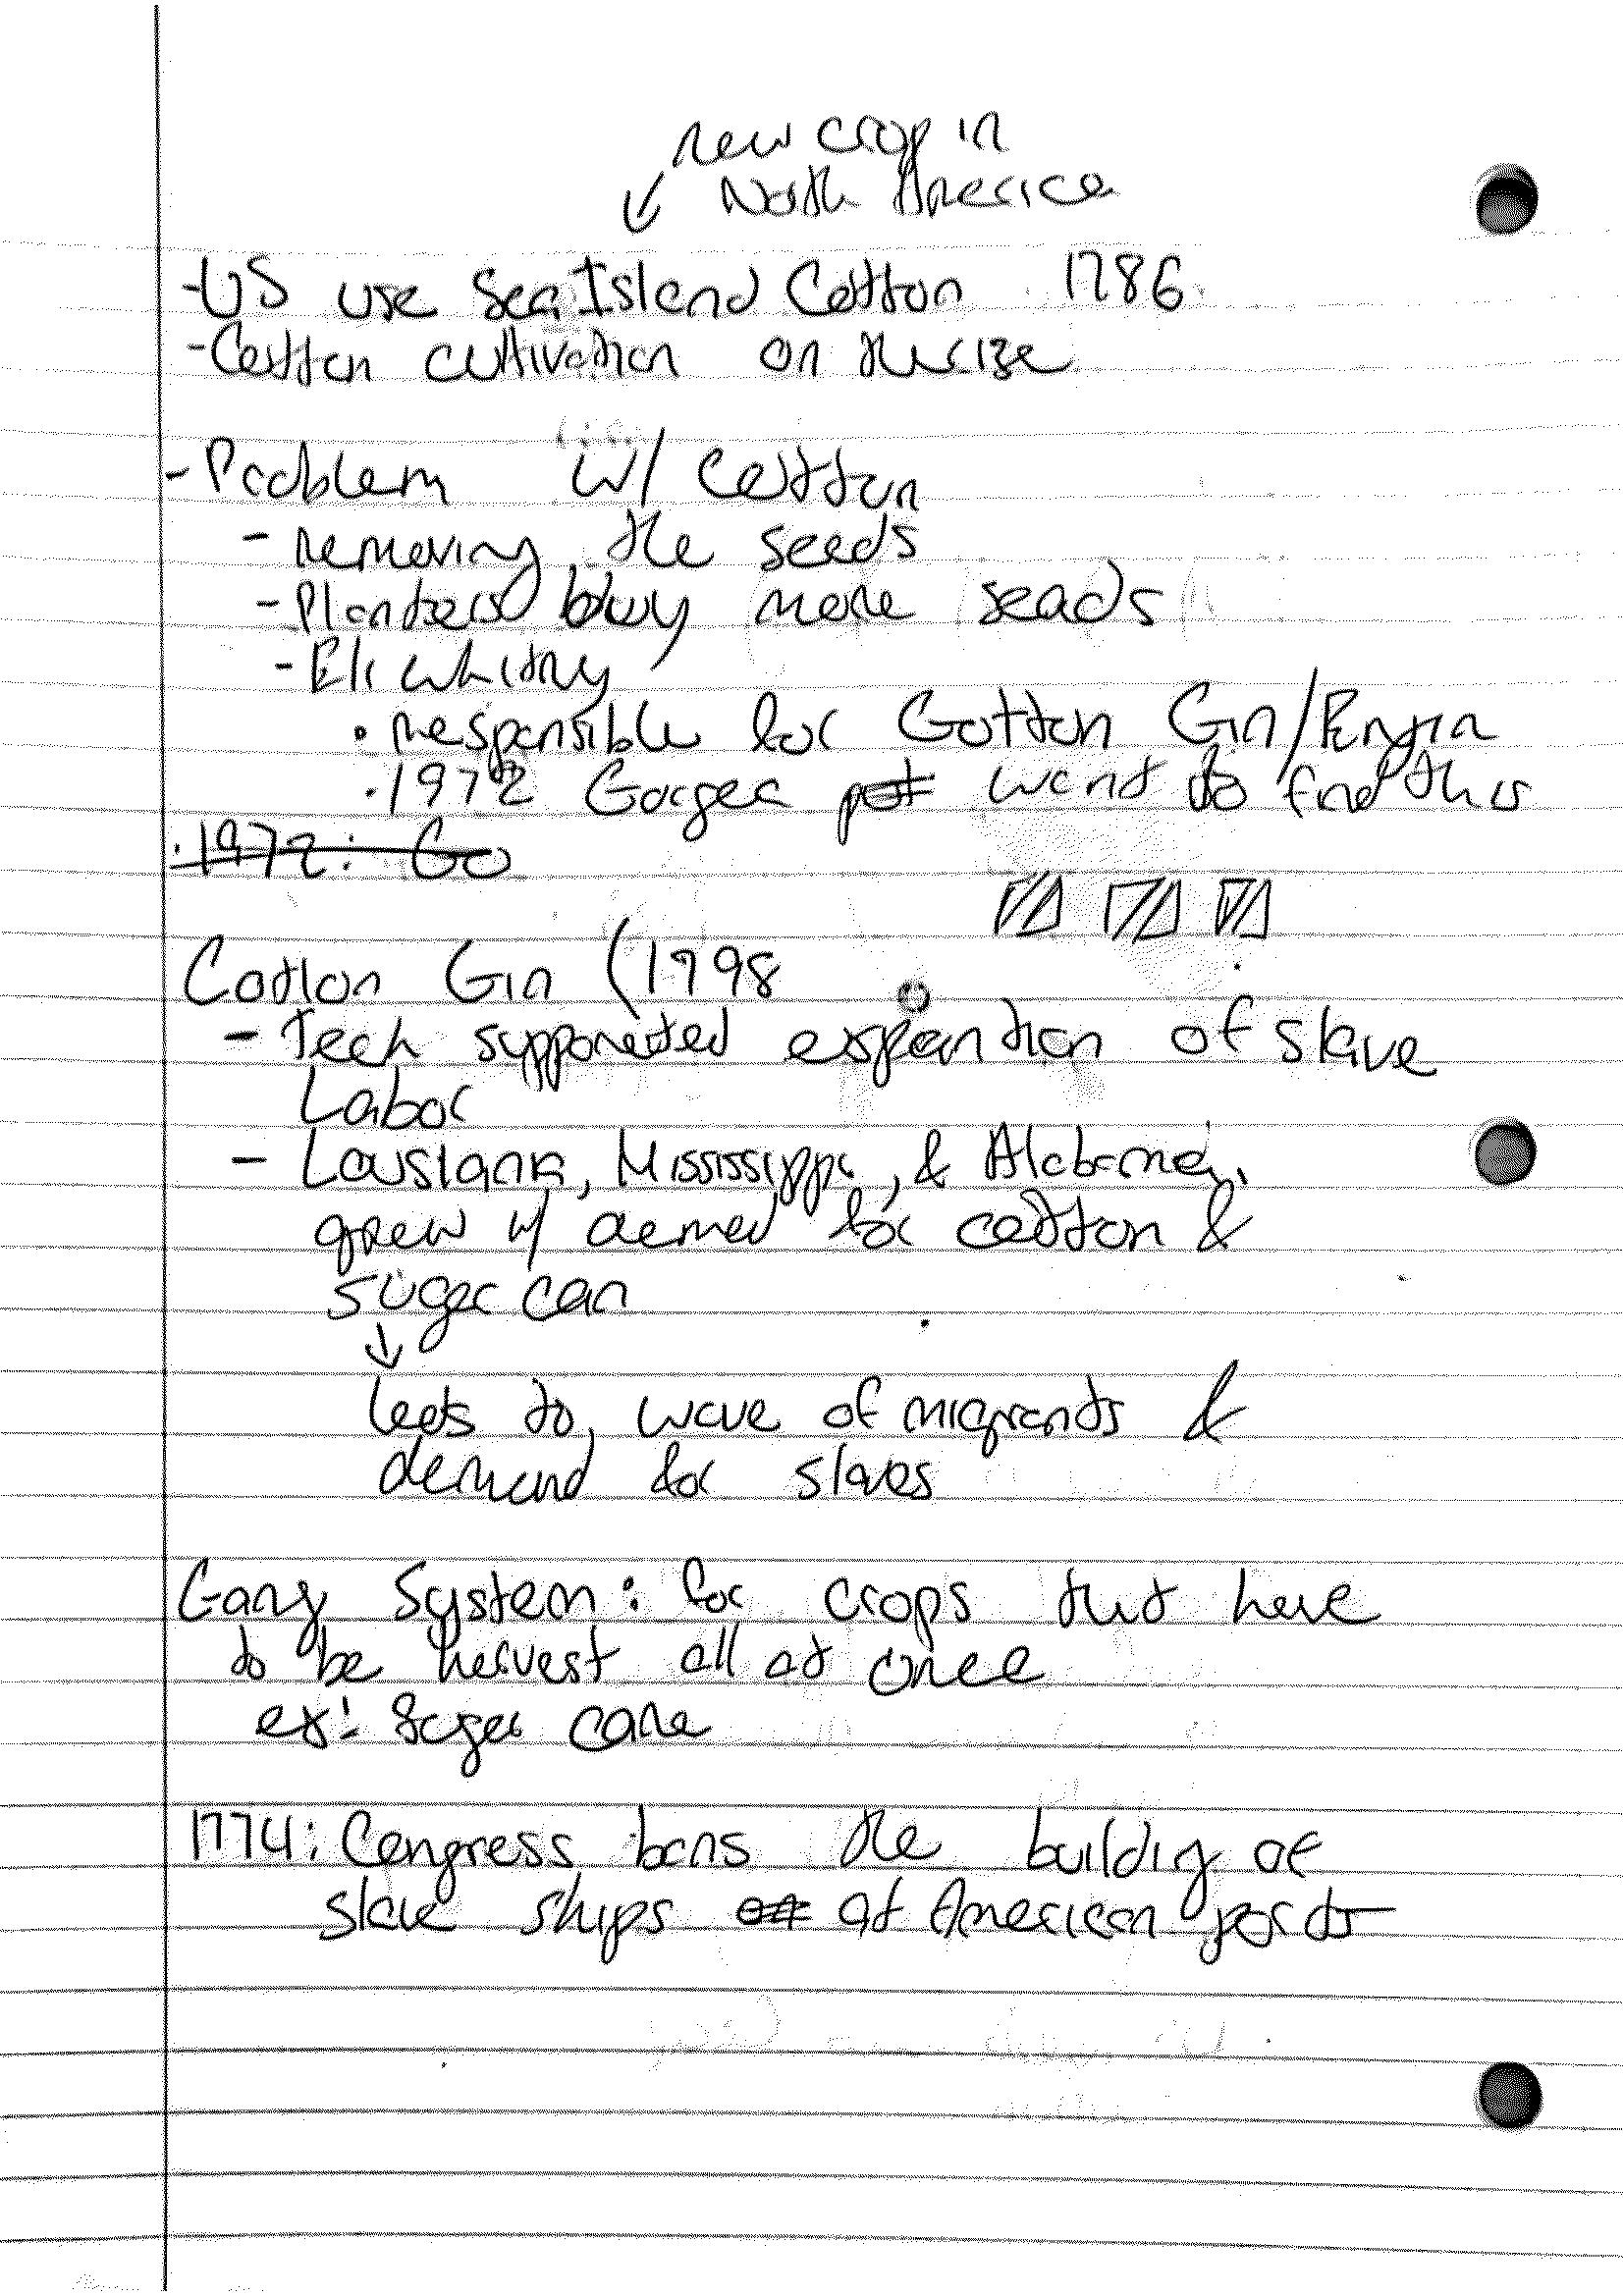 new crop in
↓ North America
-US use Sea Island Cotton 1786
-Cotton cultivation on the rize
-Problem w/ Cotton
- removing the seeds
- Planters buy more seads
- Eli Whitny
• responsible for Cotton Gin/Engin
• 1972 Gorgea went to find this
• 1972: Go
Cotton Gin (1798
- Tech supporeted expantion of slave
Labor
- Lousiana, Mississippi, & Alabama,
grew w/ demed for cotton &
suger can
↓
leets to wave of migrants &
demand for slaves
Gang System: for crops that have
to be harvest all at once
ex: Suger cane
1774: Congress bans the buildig of
slave ships at American ports